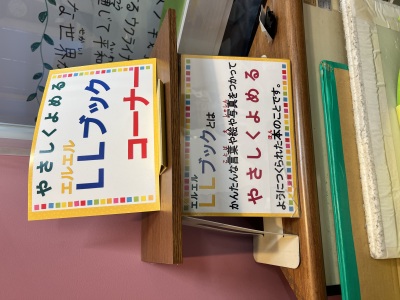 やさしくよめる
エルエル
LLブック
コーナー
エルエル
LLブックとは
かんたんな言葉や絵や写真をつかって
やさしくよめる
ようにつくられた本のことです。